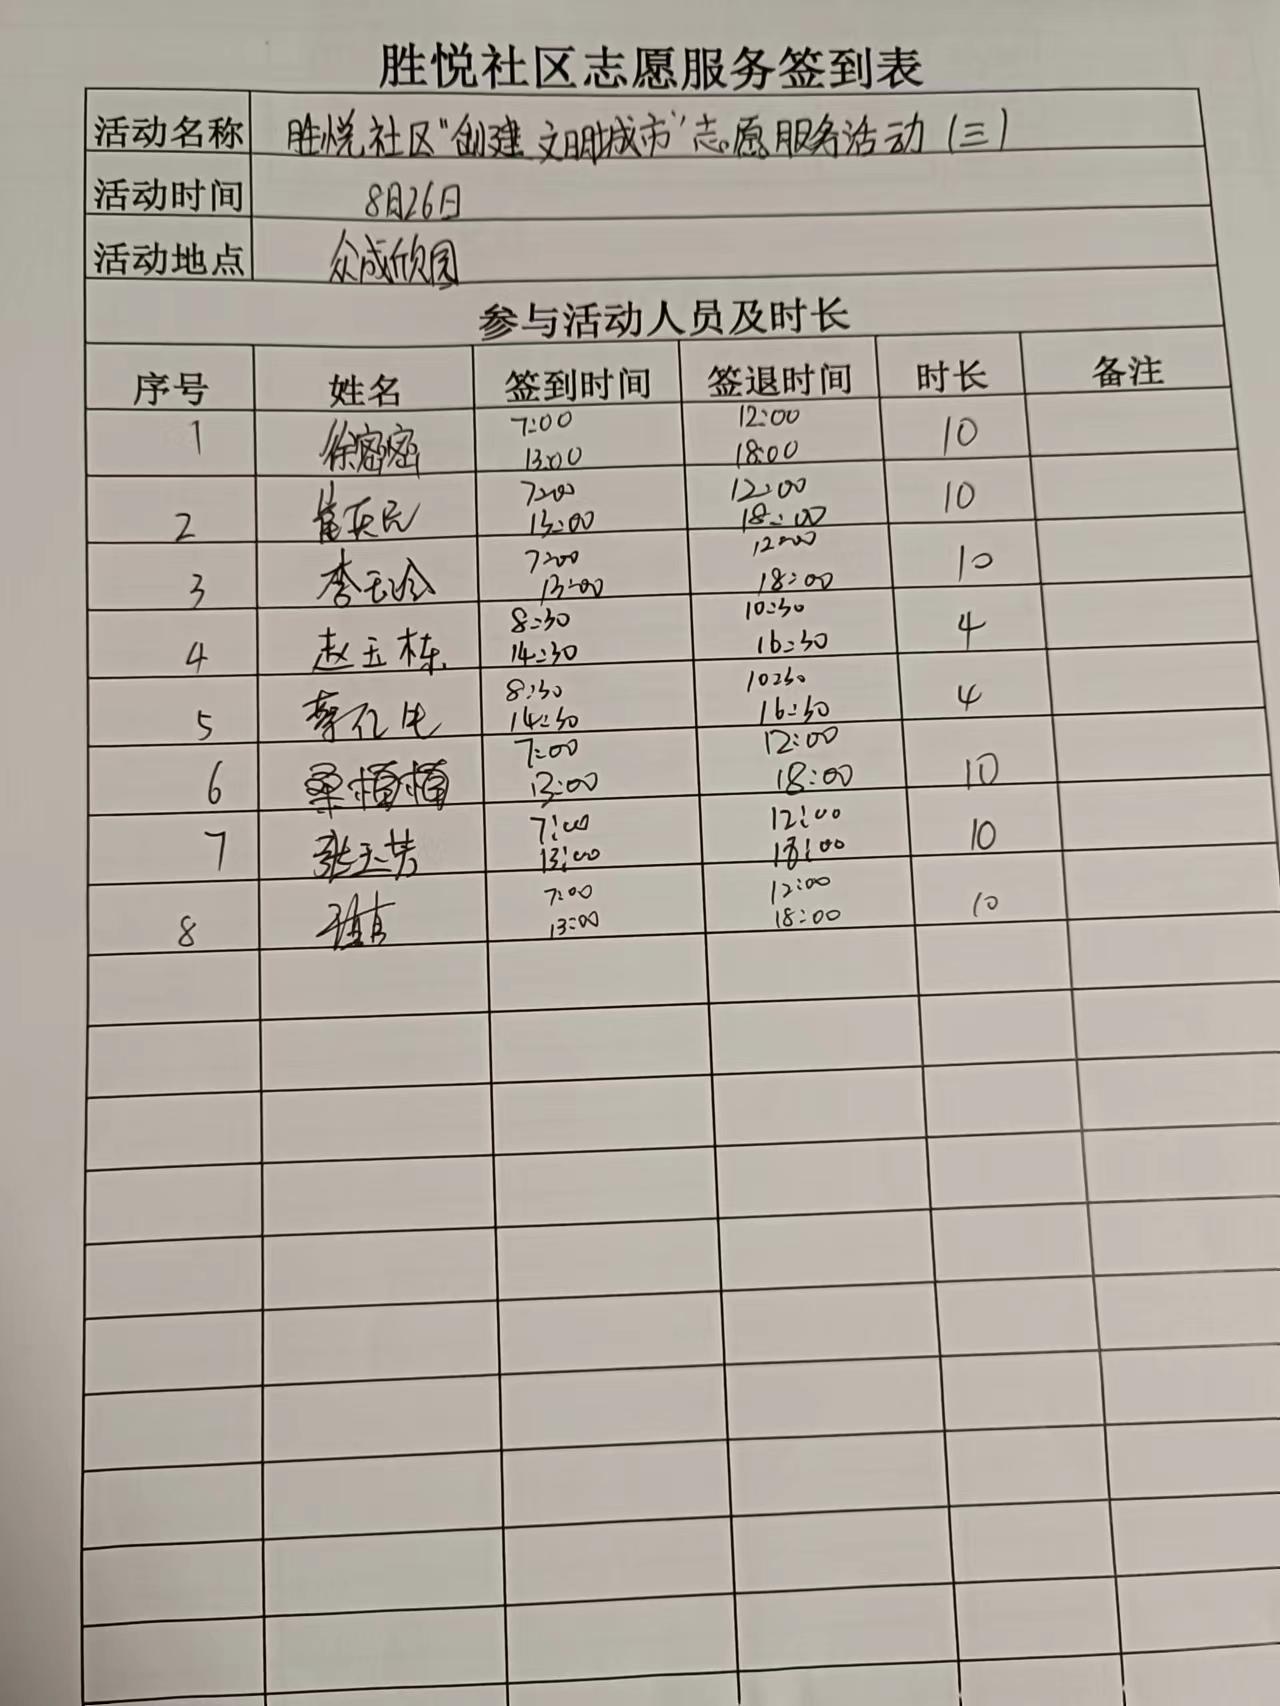 胜悦社区志愿服务签到表
活动名称 胜悦社区"创建文明城市"志愿服务活动(三)
活动时间 8月26日
活动地点 众成欣园
参与活动人员及时长
序号 姓名 签到时间 签退时间 时长 备注
1 徐密密 7:00 12:00 10
13:00 18:00
2 7:00 12:00 10
13:00 18:00
3 李玉玲 7:00 12:00 10
13:00 18:00
4 赵玉栋 8:30 10:30 4
14:30 16:30
5 8:30 10:30 4
14:30 16:30
6 桑植植 7:00 12:00 10
13:00 18:00
7 张玉芳 7:00 12:00 10
13:00 18:00
8 7:00 12:00 10
13:00 18:00